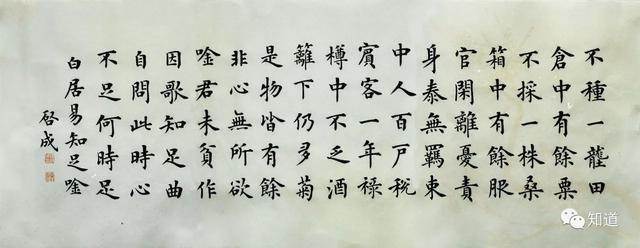 不種一壟田
倉中有餘粟
不採一株桑
箱中有餘服
官閑離憂責
身泰無羈束
中人百戶稅
賓客一年祿
樽中不乏酒
籬下仍多菊
是物皆有餘
非心無所欲
唫君未貧作
因歌知足曲
自問此時心
不足何時足
白居易知足唫
啓成
知道